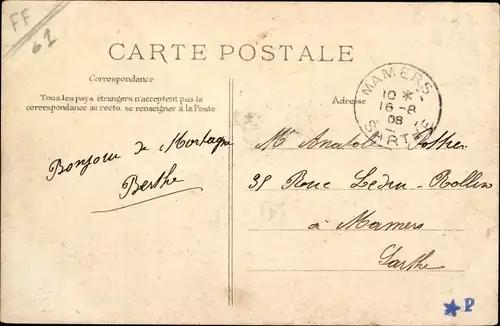 FF
61
CARTE POSTALE
Correspondance
Tous les pays étrangers n'acceptent pas la
correspondance au recto. se renseigner à la Poste
Adresse
MAMERS
10 *
16 - 8
08
SARTHE
Bonjour de Mortagne
Berthe
Mr Anatole
Rue Ledru-Rollin
à Mamers
Sarthe
★ P